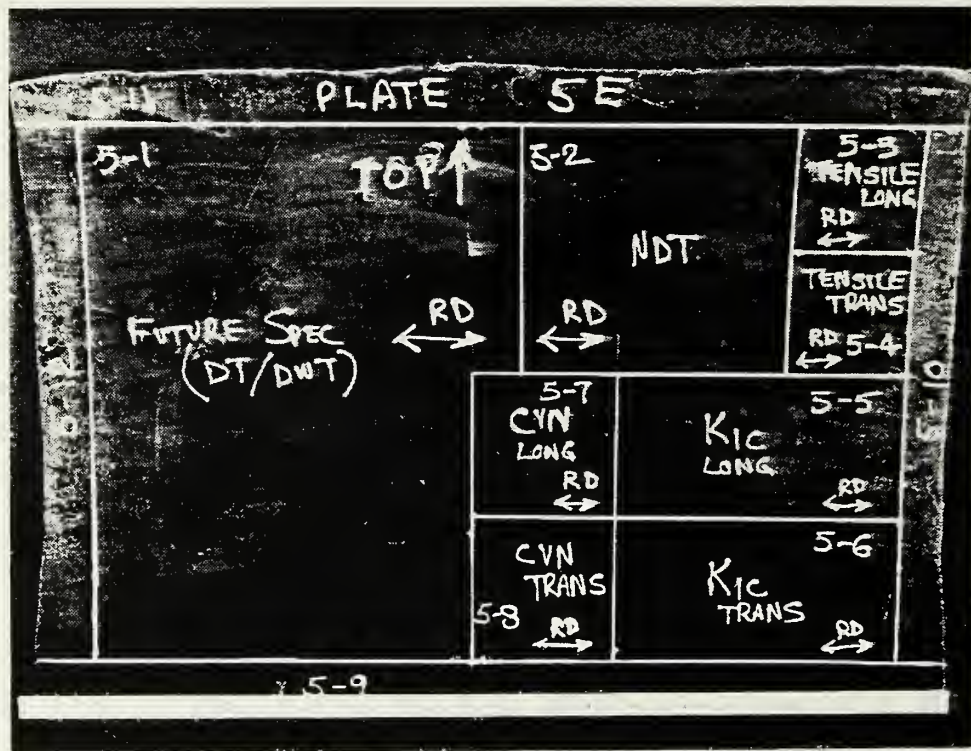 PLATE 5E
5-1
TOP
RD
FUTURE SPEC
(DT/DWT)
5-2
NDT
RD
5-3
TENSILE
LONG
RD
TENSILE
TRANS
RD 5-4
5-7
CVN
LONG
RD
5-5
KIC
LONG
RD
CVN
TRANS
5-8
RD
5-6
KIC
TRANS
RD
5-10
5-9